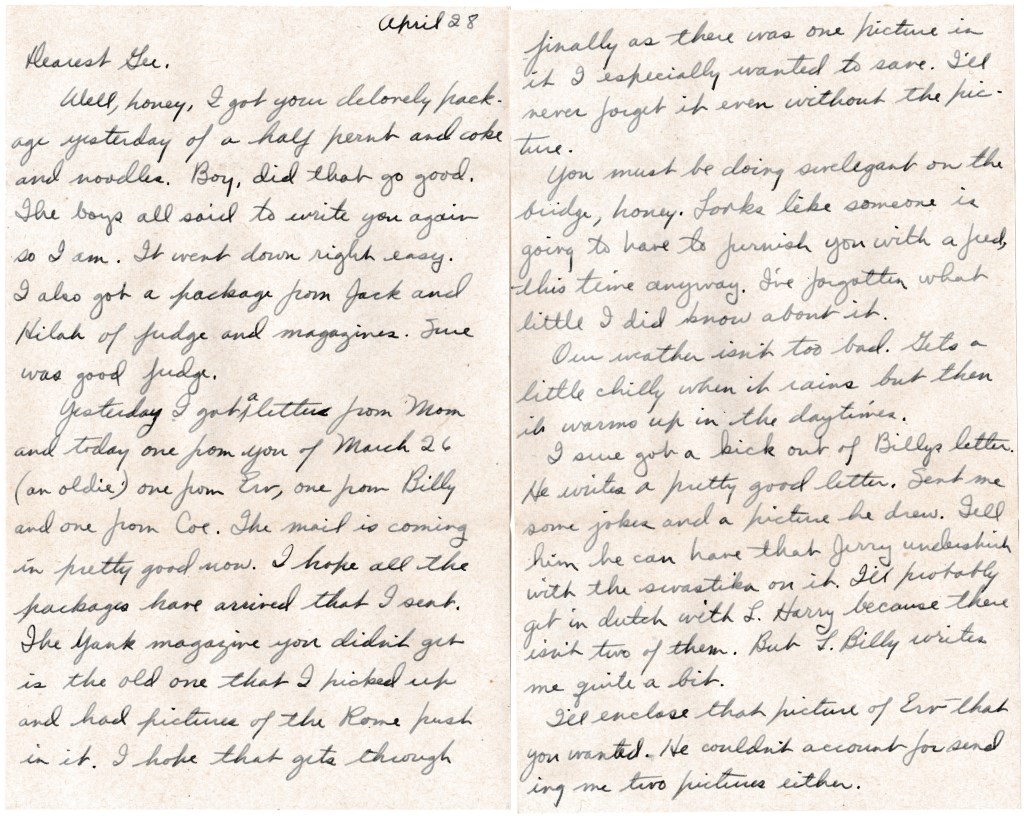 April 28
Dearest Gee.
Well, honey, I got your delovely pack-
age yesterday of a half pernt and coke
and noodles. Boy, did that go good.
The boys all said to write you again
so I am. It went down right easy.
I also got a package from Jack and
Hilah of fudge and magazines. Sure
was good fudge.
Yesterday I got a letter from Mom
and today one from you of March 26
(an oldie) one from Erv, one from Billy
and one from Coe. The mail is coming
in pretty good now. I hope all the
packages have arrived that I sent.
The Yank magazine you didn't get
is the old one that I picked up
and had pictures of the Rome push
in it. I hope that gets through
finally as there was one picture in
it I especially wanted to save. I'll
never forget it even without the pic-
ture.
You must be doing swelegant on the
bridge, honey. Looks like someone is
going to have to furnish you with a feed,
this time anyway. I've forgotten what
little I did know about it.
Our weather isn't too bad. Gets a
little chilly when it rains but then
it warms up in the daytimes.
I sure got a kick out of Billys letter.
He writes a pretty good letter. Sent me
some jokes and a picture he drew. Tell
him he can have that Jerry undershirt
with the swastika on it. I'll probably
get in dutch with L. Harry because there
isn't two of them. But L. Billy writes
me quite a bit.
I'll enclose that picture of Erv that
you wanted. He couldn't account for send
ing me two pictures either.